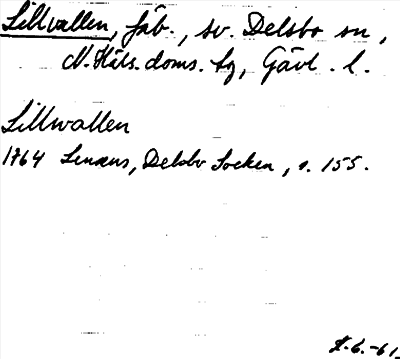 Lillvallen, fäb., sv. Delsbo sn,
N. Häls. doms. tg, Gävl. l.
Lillwallen
1764 Lenæus, Delsbo Socken, s. 155.